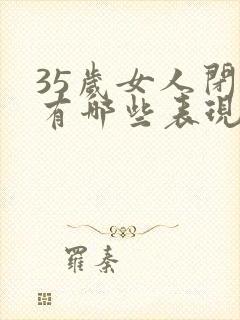 35歲女人閉
有哪些表現
羅秦